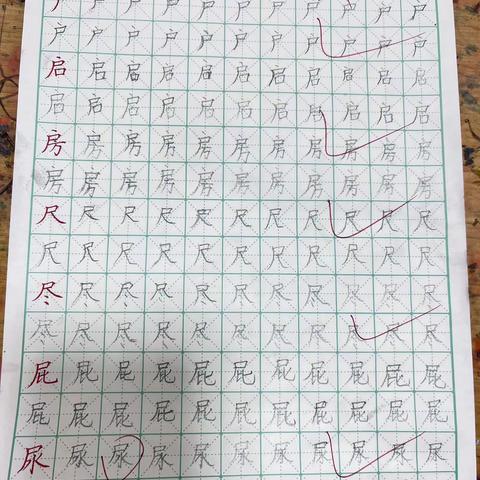 户 户 户 户 户 户 户 户 户 户 户
户 户 户 户 户 户 户 户 户 户 户
启 启 启 启 启 启 启 启 启 启 启
启 启 启 启 启 启 启 启 启 启 启
房 房 房 房 房 房 房 房 房 房 房
房 房 房 房 房 房 房 房 房 房 房
尺 尺 尺 尺 尺 尺 尺 尺 尺 尺 尺
尺 尺 尺 尺 尺 尺 尺 尺 尺 尺 尺
尽 尽 尽 尽 尽 尽 尽 尽 尽 尽 尽
尽 尽 尽 尽 尽 尽 尽 尽 尽 尽 尽
屁 屁 屁 屁 屁 屁 屁 屁 屁 屁 屁
屁 屁 屁 屁 屁 屁 屁 屁 屁 屁 屁
尿 尿 尿 尿 尿 尿 尿 尿 尿 尿 尿